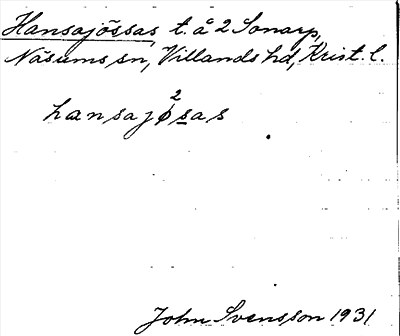 Hansajössas t. å 2 Sonarp,
Näsums sn, Villands hd, Krist. l.
2
hansajøsas
John Svensson 1931